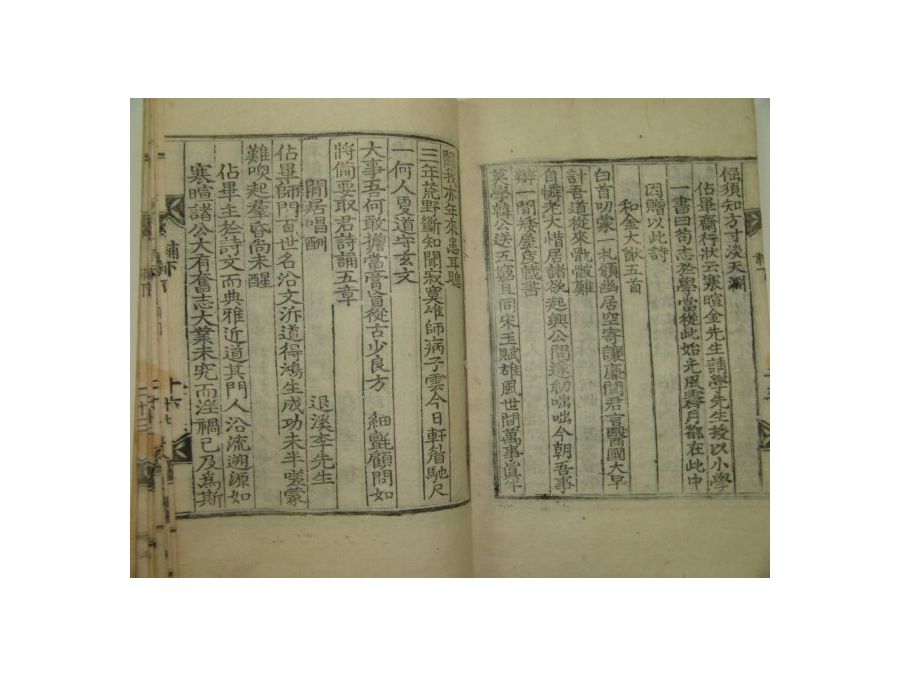 倔須知方寸淡天淵
佔畢齋行狀云寒暄金先生請學先生授以小學
一書曰苟志於學當從此始光風霽月都在此中
因贈以此詩
和金大猷五首
白首叨蒙一札頒幽居空寄讓廉間君言醫國大早
計吾道從來骫骳難
自憐老大惜居諸欲起興公問遂初咄咄今朝吾事
辦一間矮屋
學韓公送五窮且同宋玉賦雄風世間萬事眞
我亦年來患耳聰
三年荒野斷知聞寂寞雄師病子雲今日軒眉馳尺
一何人更道守玄文
大事吾何敢擔當膏肓從古少良方 細氈顧問如
將備要取君詩誦五章
閒居唱酬 退溪李先生
佔畢師門百世名沿文泝道得鴻生成功未半嗟蒙
難喚起羣昏尚未醒
佔畢主於詩文而典雅近道其門人沿流遡源如
寒暄諸公大有奮志大業未究而淫禍已及爲斯
補下